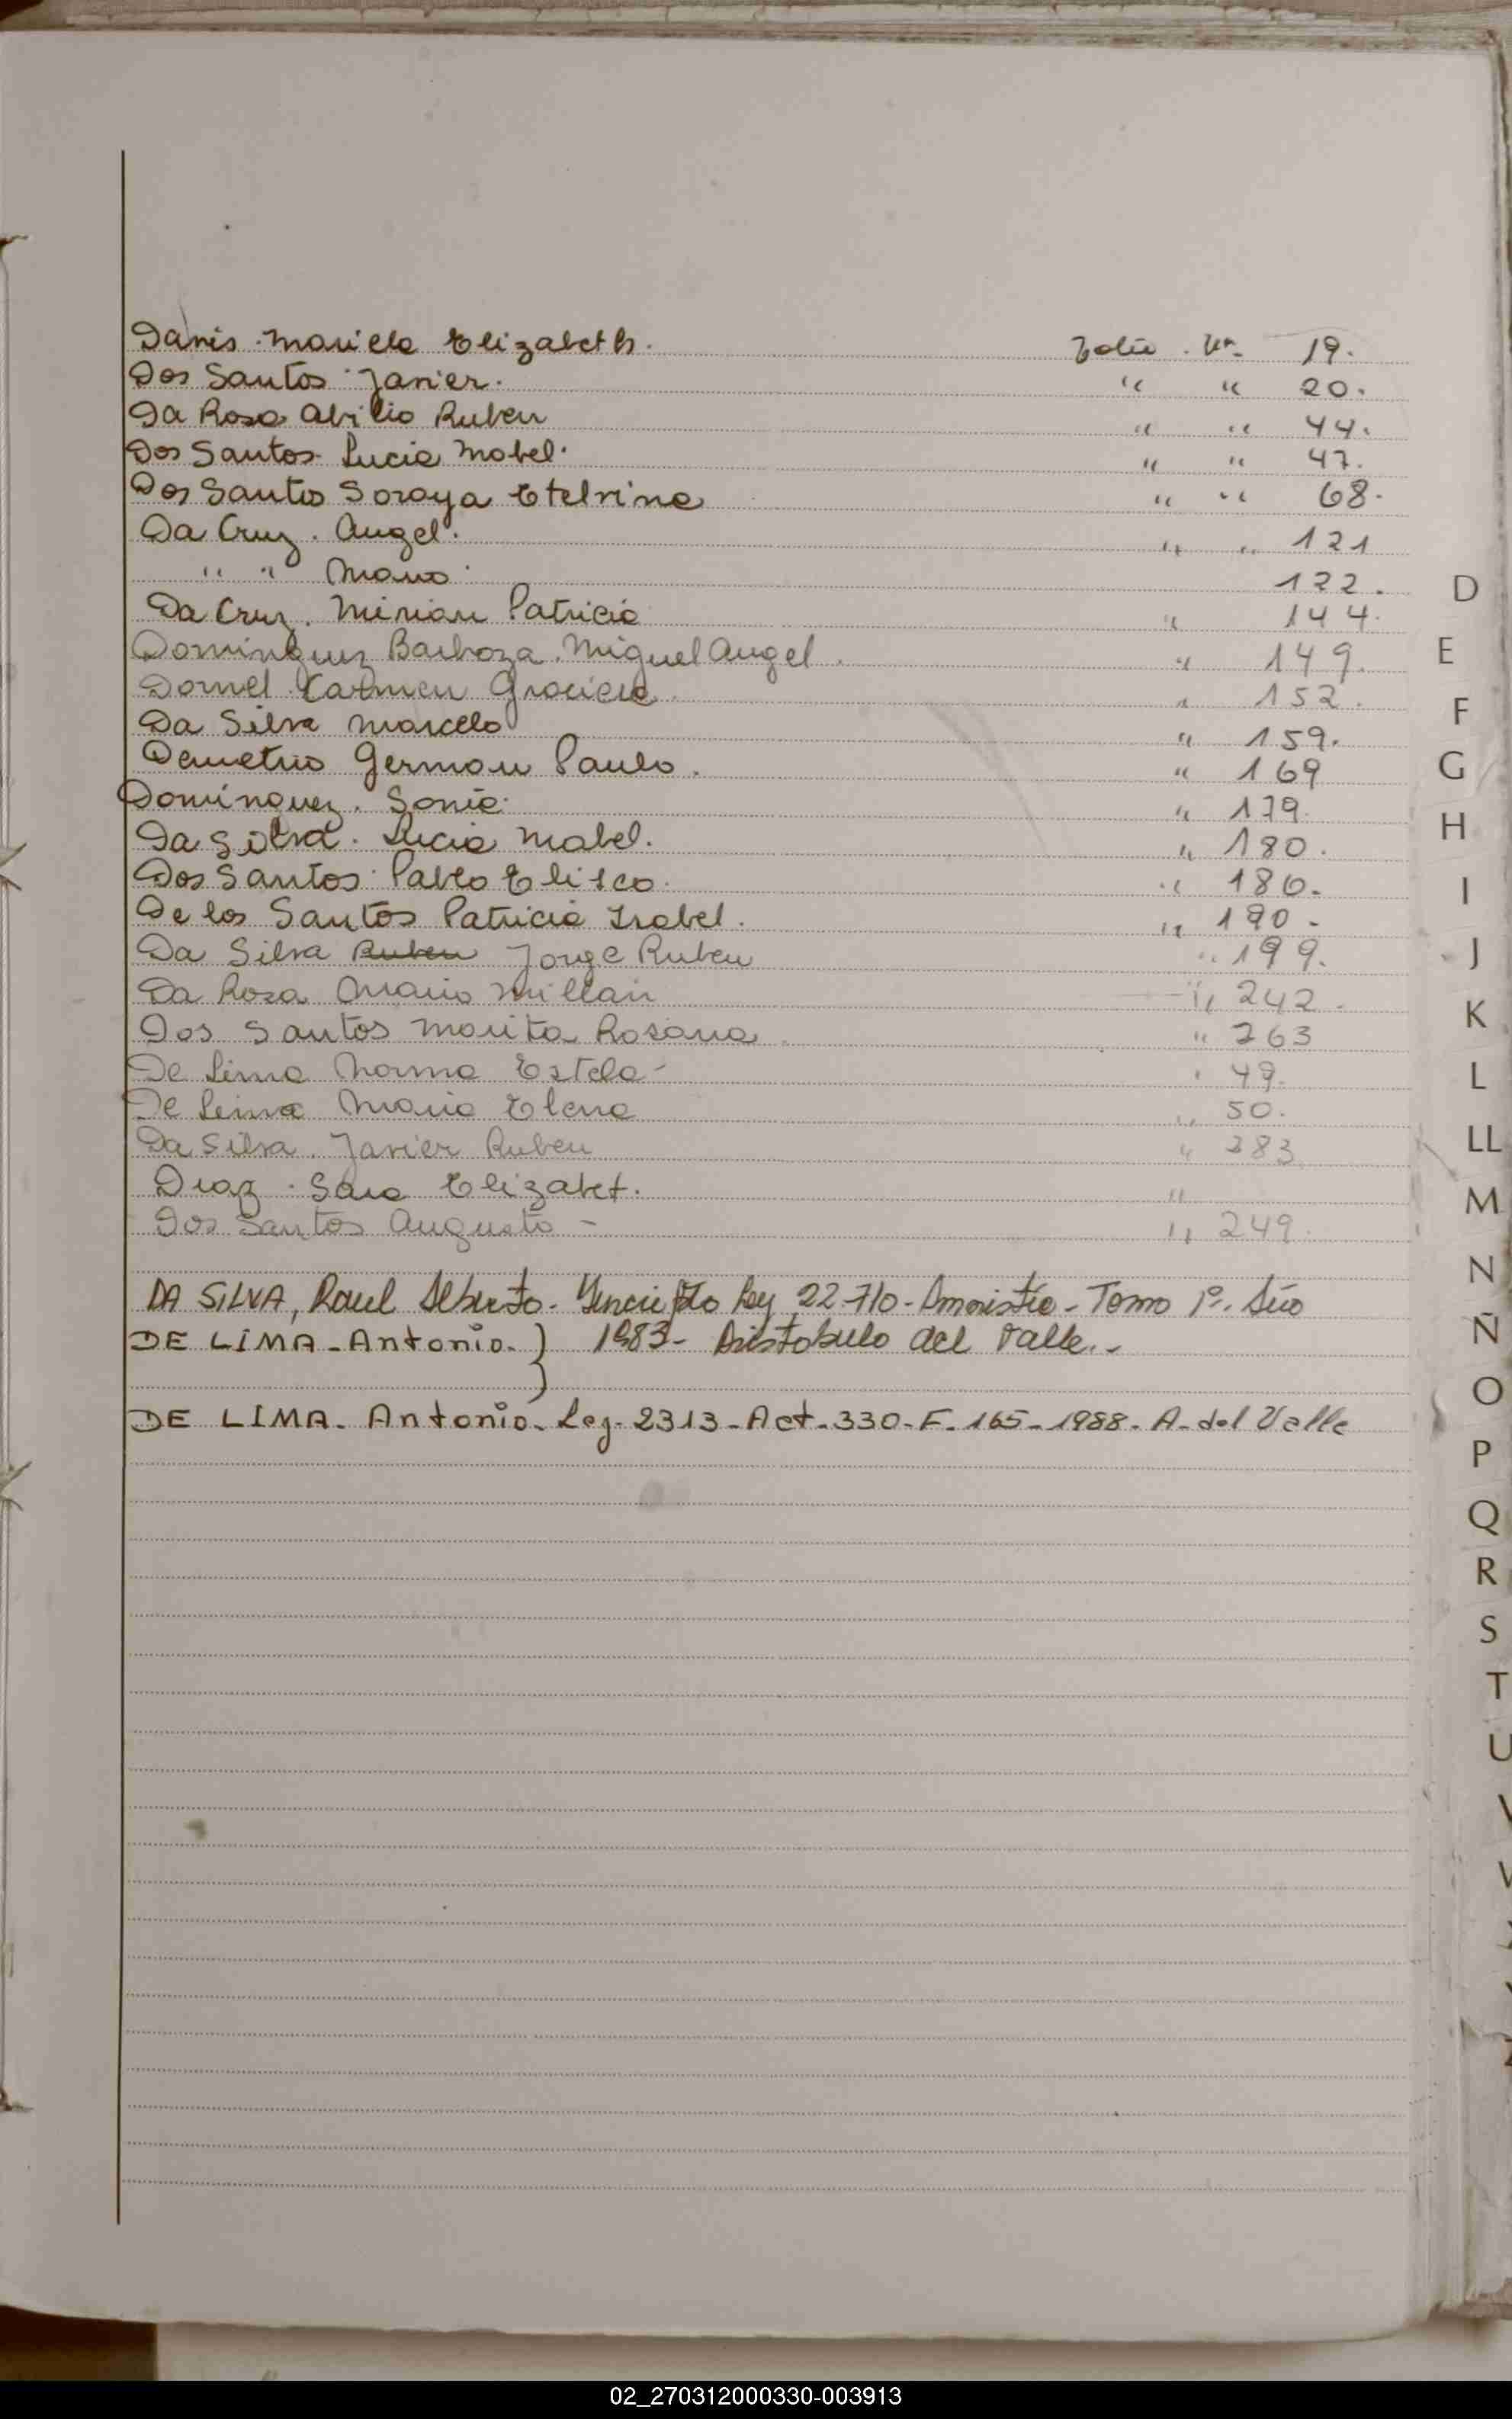 Danis Mariela Elizabeth. Folio Nº 19.
Dos Santos Javier. " " 20.
Da Rosa Abilio Ruben " " 44.
Dos Santos Lucia Mabel. " " 47.
Dos Santos Soraya Etelvina " " 68.
Da Cruz. Angel. " " 121
" " Mario 122.
Da Cruz. Mirian Patricia " 144.
Dominguez Barboza. Miguel Angel. " 149.
Dornel Carmen Graciela " 152.
Da Silva Marcelo " 159.
Demetrio German Paulo. " 169
Dominguez. Sonia. " 179.
Da Silva. Lucia Mabel. " 180.
Dos Santos Pablo Eliseo. " 186.
De los Santos Patricia Isabel. " 190.
Da Silva Ruben Jorge Ruben " 199.
Da Rosa Mario Millan " 242.
Dos Santos Marita Rosana " 263
De Lima Norma Estela- " 49.
De Lima Maria Elena " 50.
Da Silva. Javier Ruben " 383
Diaz. Sara Elizabet. "
Dos Santos Augusto - " 249.
DA SILVA, Raul Alberto. Ley 22.710 - Amnistía - Tomo 1º. Año
DE LIMA - Antonio. } 1983 - Aristobulo del Valle. -
DE LIMA. Antonio. Leg. 2313 - Act. 330 - F. 165 - 1988. A. del Valle
D
E
F
G
H
I
J
K
L
LL
M
N
Ñ
O
P
Q
R
S
T
U
02_270312000330-003913